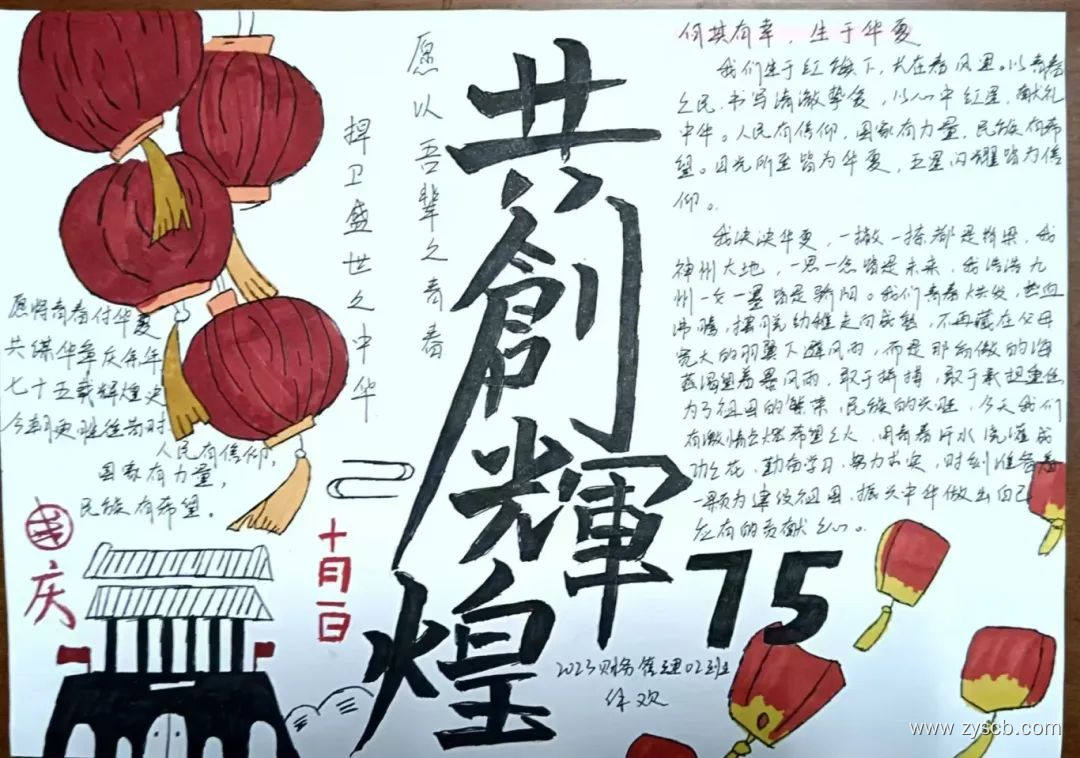 愿以吾辈之青春
捍卫盛世之中华
共創輝煌
何其有幸，生于华夏
我们生于红旗下，长在春风里。以青春
之民，书写清澈挚爱，以心中红星，献礼
中华。人民有信仰，国家有力量，民族有希
望。目光所至皆为华夏，五星闪耀皆为信
仰。
我泱泱华夏，一撇一捺都是脊梁，我
神州大地，一思一念皆是未来，我浩浩九
州一文一墨皆是骄阳。我们青春发，热血
沸腾，摆脱幼稚走向成熟，不再藏在父母
宽大的羽翼下避风雨，而是那傲的海
燕渴望着暴风雨，敢于拼搏，敢于承担重任
为了祖国的繁荣，民族的兴旺，今天我们
有激情点燃希望之火，用青春汗水浇灌成
功之花，勤奋学习，努力求实，时刻准备着
一颗为建设祖国，振兴中华做出自己
应有的贡献之心。
愿将青春付华夏
共谋华章庆余年
七十五载辉煌史
今朝更胜往昔时
人民有信仰，
国家有力量，
民族有希望。
国庆
十月一日
75
2023财务管理02班
欢
www.zyscb.com